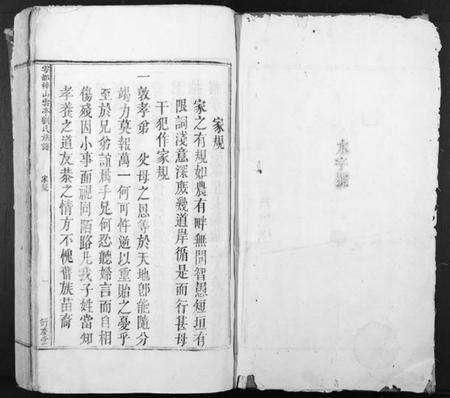 水字號
家規
家之有規如農有畔無開智愚短垣有
限詞淺意深庶幾道岸循是而行甚毋
干犯作家規
一敦孝弟 父母之恩等於天地卽能隨分
竭力莫報萬一何可忤逆以重貽之憂乎
至於兄弟誼屬手足何忍聽婦言而自相
傷殘因小事而視同陌路凡我子姓當知
孝養之道友恭之情方不愧舊族苗裔
劉氏族譜
家規